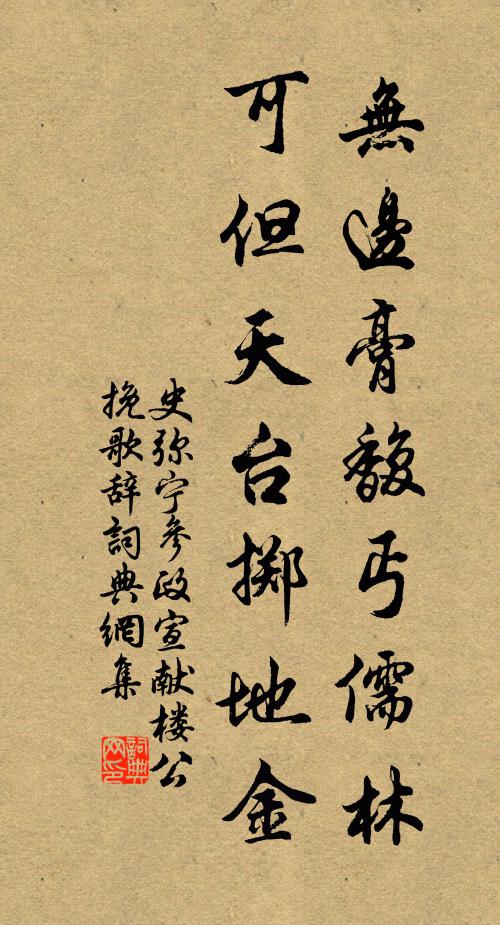 無邊膏馥丐儒林
可但天台擲地金
史弥宁參政宣献楼公
挽歌辞詞典網集
詞典网印